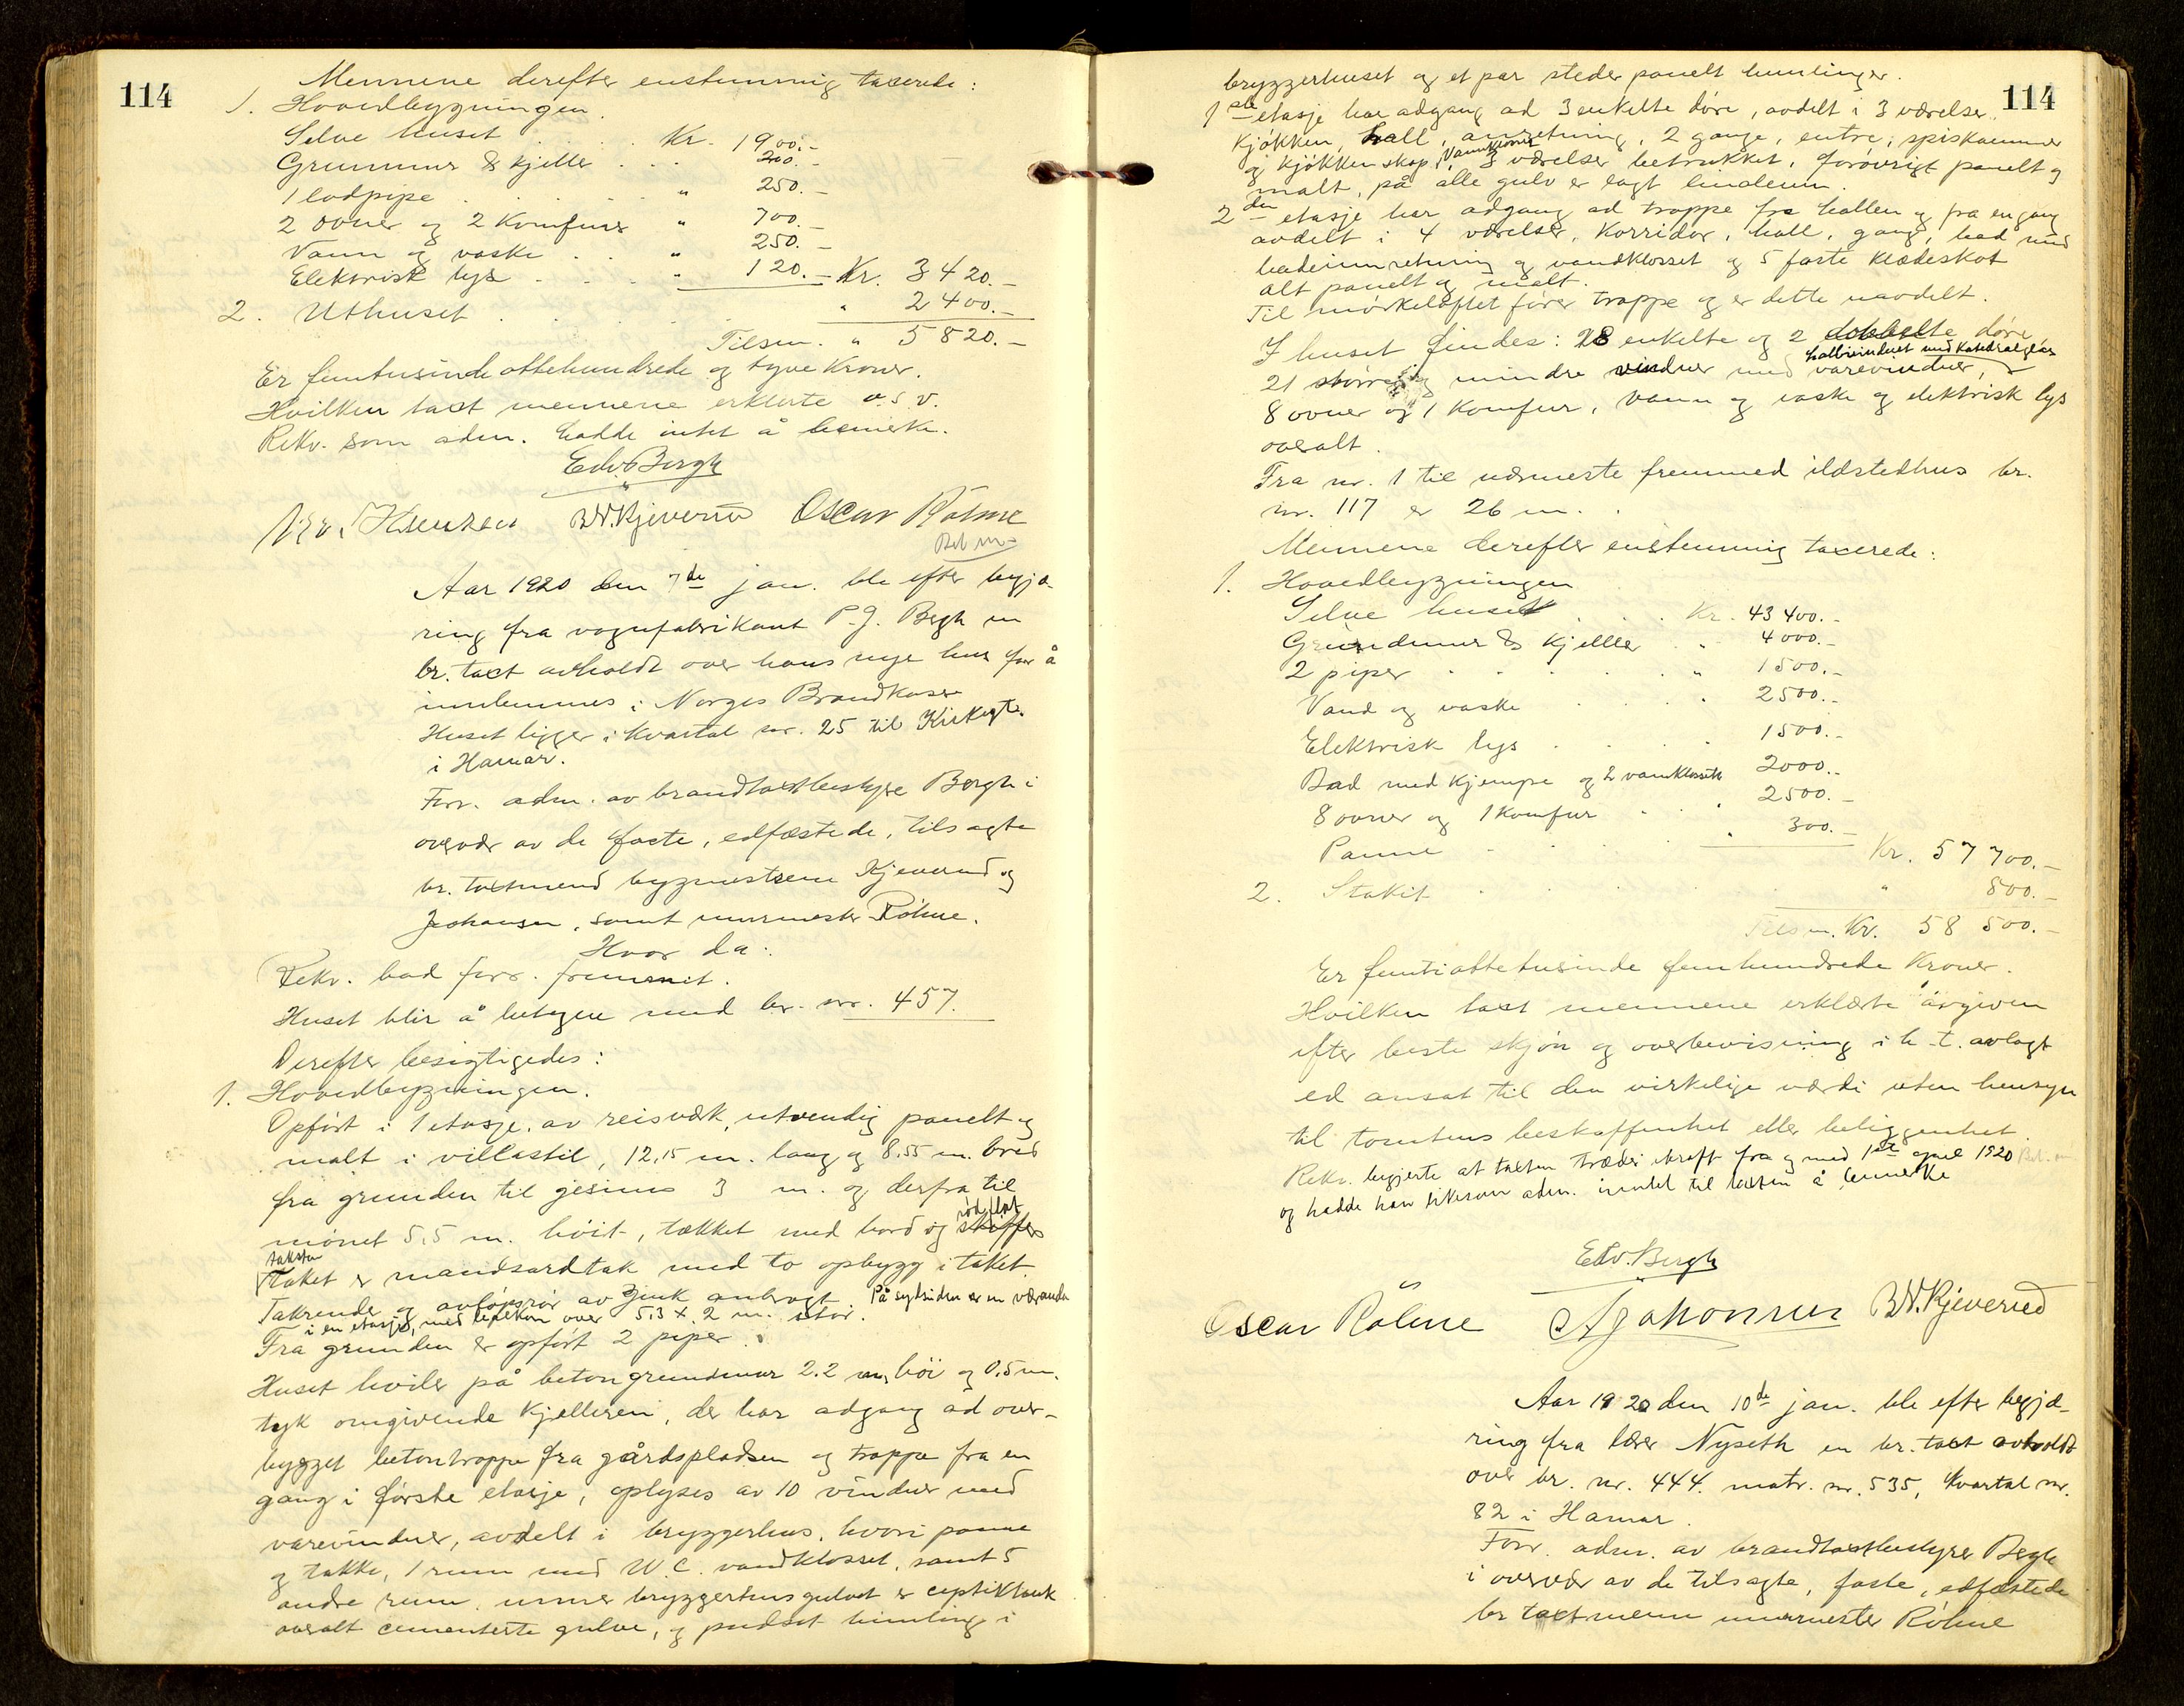 114
Mennene derefter enstemmig taxerede:
1. Hovedbygningen.
Selve huset . . . Kr. 1900.-
Grunmur & kjeller . . . 200.-
1 lodpipe . . . " 250.-
2 ovner og 2 Komfurer " 700.-
Vann og vaske . . " 250.-
Elektrisk lys . . . " 120.- Kr. 3420.-
2. Uthuset . . . . " 2400.-
Tilsm. " 5820.-
Er femtusindeottehundrede og tyve Kroner.
Hvilken taxt mennene erklærte o.s.v.
Rekv. som adm. hadde intet å bemerke.
Edv. Bergh
B.N. Kjeverud Oscar Röhne
Aar 1920 den 7de jan. ble efter begjæ-
ring fra vognfabrikant P.J. Bergh en
br. taxt avholdt over hans nye hus for å
innlemmes i Norges Brandkasse
Huset ligger i kvartal nr. 25 til Kirkegt.
i Hamar.
Forr. adm. av brandtaxtbestyrer Bergh i
overvær av de faste, edfæstede, tilsagte
br. taxtmend bygmestrene Kjeverud og
Johansen, samt murmester Röhne.
Hvor da:
Rekv. bad forr. fremmet.
Huset blir å betegne med br. nr. 457.
Derefter besigtigedes:
1. Hovedbygningen.
Opført i 1 etasje, av reisværk, utvendig panelt og
malt i villastil, 12,15 m. lang og 8,55 m. bred
fra grunden til gesims 3 m. og derfra til
mønet 5,5 m. höit, tækket med bord og skiffer rød flat
taksten
Taket er mandsardtak med to opbygg i taket.
Takrender og avløpsrör av zink anbragt. På sydsiden er en væranda
i en etasje, med balkon over 5,3 x 2 m. stor.
Fra grunden er opført 2 piper.
Huset hviler på betongrundmur 2.2 m. höi og 0,5 m.
tyk omgivende kjelleren, der har adgang ad over-
bygget betontrappe fra gårdspladsen og trappe fra en
gang i første etasje, oplyses av 10 vinduer med
varevinduer, avdelt i bryggerhus, hvori panne
og takke, 1 rum med W.C. vandklosset, samt 5
andre rum, under bryggerhusgulvet er ceptiktank
overalt cementerte gulve, og pudset himling i
114
bryggerhuset og et par steder panelt himlinger.
1ste etasje har adgang ad 3 enkelte døre, avdelt i 3 værelser,
Kjökken, hall, anretning, 2 gange, entre, spiskammer
og kjökkenskap, Vannkloset 3 værelser betrukket, forövrigt panelt og
malt, på alle gulv er lagt linoleum.
2den etasje har adgang ad trappe fra hallen og fra en gang
avdelt i 4 værelser, Korridor, hall, gang, bad med
badeinnretning og vandklosset og 5 faste klædeskot
alt panelt og malt.
Til mörkeloftet fører trappe og er dette uavdelt.
I huset findes: 28 enkelte og 2 dobbelte døre
21 större og mindre vinduer med varevinduer, hallvinduet med Katedralglas
8 ovner og 1 Komfur, Vann og vaske og elektrisk lys
overalt.
Fra nr. 1 til nærmeste fremmed ildstedhus br.
nr. 117 er 26 m.
Mennene derefter enstemmig taxerede:
1. Hovedbygningen
Selve huset . . . Kr. 43400.-
Grundmur & kjeller . " 4000.-
2 piper . . . . " 1500.-
Vand og vaske . . . " 2500.-
Elektrisk lys . . . " 1500.-
Bad med kjempe og 2 vannklossete 2000.-
8 ovner og 1 komfur . " 2500.-
Panne . . . . " 300.-
Kr. 57700.-
2. Stakit . . . . " 800.-
Tilsm. Kr. 58500.-
Er femtiottetusinde femhundrede Kroner.
Hvilken taxt mennene erklærte avgiven
efter beste skjön og overbevisning i h. t. avlagt
ed ansat til den virkelige værdi uten hensyn
til tomtens beskaffenhet eller beliggenhet.
Rekv. begjerte at taxten træder ikraft fra og med 1ste april 1920
og hadde han likesom adm. inntet til taxten å bemerke
Edv. Bergh
Oscar Röhne A Johansen B.N. Kjeverud
Aar 1920 den 10de jan. ble efter begjæ-
ring fra lærer Nyseth en br. taxt avholdt
over br. nr. 444. matr. nr. 535, kvartal nr.
82 i Hamar.
Forr. adm. av brandtaxtbestyrer Bergh
i overvær av de tilsagte, faste, edfæstede
br taxtmenn murmester Röhne